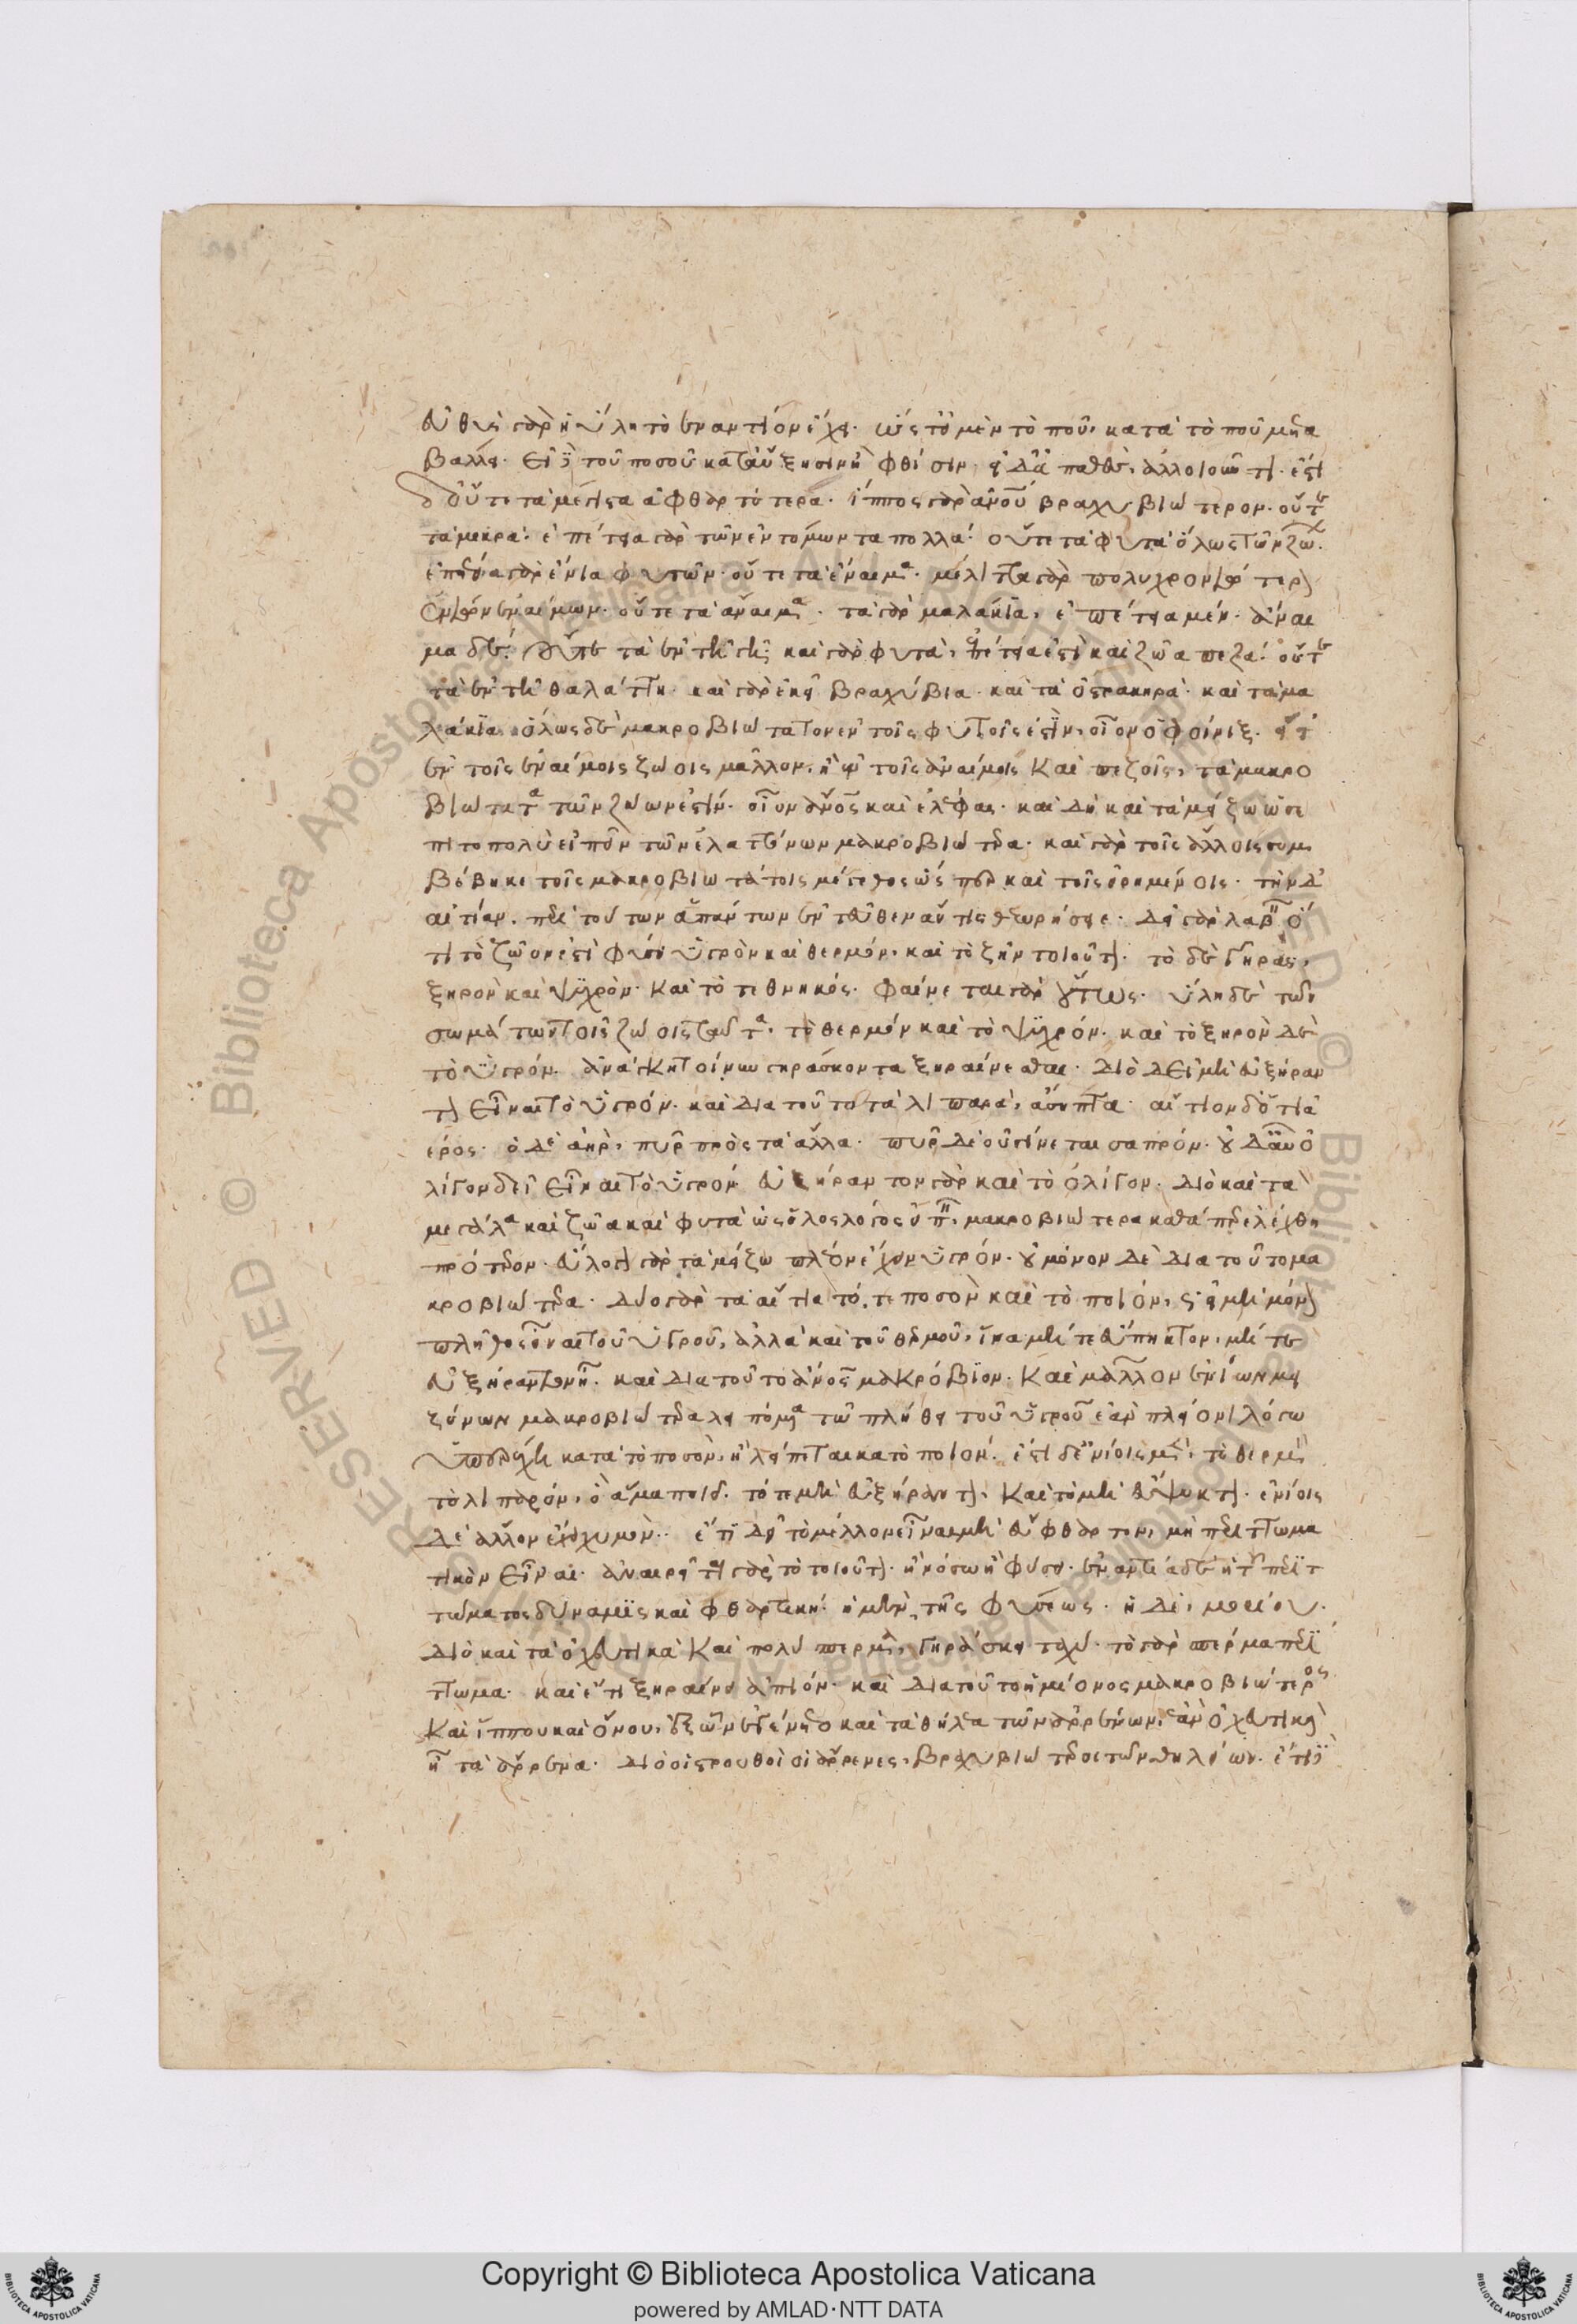 εὐθὺς γὰρ ἡ ὕλη τὸ ἐναντίον ἔχει. ὥστε τοῦ μὲν τὸ ποῦ, κατὰ τὸ ποῦ μετα
βάλλει. ἔτι τοῦ ποσοῦ κατ' αὔξησιν ἢ φθίσιν. εἰ δὲ πάθει, ἀλλοιοῦται. ἔστι
δ' οὔτε τὰ μέγιστα ἀφθαρτότερα. ἵππος γὰρ ἀνοῦ βραχυβιώτερον. οὔτε
τὰ μικρά. ἐπέτεια γὰρ τῶν ἐντόμων τὰ πολλά. οὔτε τὰ φυτὰ ὅλως τῶν ζώ.
ἐπέτεια γὰρ ἔνια φυτῶν. οὔτε τὰ ἔναιμα. μέλιττα γὰρ πολυχρονιώτερον
ἐνίων ἐναίμων. οὔτε τὰ ἄναιμα. τὰ γὰρ μαλάκια, ἐπέτεια μέν. ἄναι
μα δέ. οὔτε τὰ ἐν τῇ γῇ. καὶ γὰρ φυτὰ, ἐπέτειά ἐστι καὶ ζῶα πεζά. οὔτε
τὰ ἐν τῇ θαλάττῃ. καὶ γὰρ ἐκεῖ βραχύβια. καὶ τὰ ὀστρακηρά. καὶ τὰ μα
λάκια. ὅλως δὲ μακροβιώτατον ἐν τοῖς φυτοῖς ἐστιν, οἷον ὁ φοίνιξ. εἶτ'
ἐν τοῖς ἐναίμοις ζώοις μᾶλλον, ἢ ἐν τοῖς ἀναίμοις καὶ πεζοῖς, τὰ μακρο
βιώτατα τῶν ζώων ἐστίν. οἷον ἄνος καὶ ἐλέφας. καὶ δὴ καὶ τὰ μείζω ὡς ἐ
πιτοπολὺ εἰπεῖν τῶν ἐλαττόνων μακροβιώτερα. καὶ γὰρ τοῖς ἄλλοις συμ
βέβηκε τοῖς μακροβιωτάτοις μέγεθος ὥσπερ καὶ τοῖς εἰρημένοις. τὴν δ'
αἰτίαν. περὶ τούτων ἁπάντων ἐντεῦθεν ἄν τις θεωρήσειε. δεῖ γὰρ λαβεῖν ὅ
τι τὸ ζῶόν ἐστι φύσει ὑγρὸν καὶ θερμόν, καὶ τὸ ζῆν τοιοῦτον. τὸ δὲ γῆρας,
ξηρὸν καὶ ψυχρόν. καὶ τὸ τεθνηκός. φαίνεται γὰρ οὕτως. ὕλη δὲ τῶν
σωμάτων τοῖς ζώοις ταῦτα. τὸ θερμὸν καὶ τὸ ψυχρόν. καὶ τὸ ξηρὸν δὲ
τὸ ὑγρόν. ἀνάγκη τοίνυν γηράσκοντα ξηραίνεσθαι. διὸ δεῖ μὴ εὐξήραν
τον εἶναι τὸ ὑγρόν. καὶ διὰ τοῦτο τὰ λιπαρὰ, ἄσηπτα. αἴτιον δ' ὅτι ἀ
έρος. ὁ δὲ ἀὴρ, πῦρ πρὸς τὰ ἄλλα. πῦρ δὲ οὐ γίνεται σαπρόν. οὐ δ' αὖ ὀ
λίγον δεῖ εἶναι τὸ ὑγρόν. εὐξήραντον γὰρ καὶ τὸ ὀλίγον. διὸ καὶ τὰ
μεγάλα καὶ ζῶα καὶ φυτὰ ὡς ὅλος λόγος εἰπεῖν, μακροβιώτερα καθάπερ ἐλέχθη
πρότερον. εὔλογον γὰρ τὰ μείζω πλέον ἔχειν ὑγρόν. οὐ μόνον δὲ διὰ τοῦτο μα
κροβιώτερα. δύο γὰρ τὰ αἴτια τό, τε ποσὸν καὶ τὸ ποιόν, ὥστε δεῖ μὴ μόνον
πλῆθος εἶναι τοῦ ὑγροῦ, ἀλλὰ καὶ τοῦ θερμοῦ, ἵνα μήτε εὔπηκτον, μήτε
εὐξήραντον ᾖ. καὶ διὰ τοῦτο ἄνος μακρόβιον. καὶ μᾶλλον ἐνίων μει
ζόνων μακροβιώτερα λειπόμενα τῷ πλήθει τοῦ ὑγροῦ ἐὰν πλείονι λόγῳ
ὑπερέχῃ κατὰ τὸ ποσὸν, ἢ λείπεται κατὸ ποιόν. ἔστι δ' ἐνίοις μὲν, τὸ θερμὸν
τὸ λιπαρόν, ὃ ἅμα ποιεῖ. τό τε μὴ εὐξήραντον, καὶ τὸ μὴ εὔψυκτον. ἐνίοις
δὲ ἄλλον ἔχει χυμόν.. ἔτι δεῖ τὸ μέλλον εἶναι μὴ εὔφθαρτον, μὴ περιττωμα
τικὸν εἶναι. ἀναιρεῖ γὰρ τὸ τοιοῦτον. ἢ νόσῳ ἢ φύσει. ἐναντία δὲ ἡ τοῦ περιτ
τώματος δύναμις καὶ φθαρτικὴ. ἡ μὲν, τῆς φύσεως. ἡ δὲ, μορίου.
διὸ καὶ τὰ ὀχευτικὰ καὶ πολύσπερμα, γηράσκει ταχύ. τὸ γὰρ σπέρμα περίτ
τωμα. καὶ ἔτι ξηραίνει ἀπιόν. καὶ διὰ τοῦτο ἡμίονος μακροβιώτερος
καὶ ἵππου καὶ ὄνου, ἐξ ὧν ἐγένετο καὶ τὰ θήλεα τῶν ἀρρένων, ἐὰν ὀχευτικὰ
ᾖ τὰ ἄρρενα. διὸ οἱ στρουθοὶ οἱ ἄρρενες, βραχυβιώτεροι τῶν θηλειῶν. ἔτι δὲ